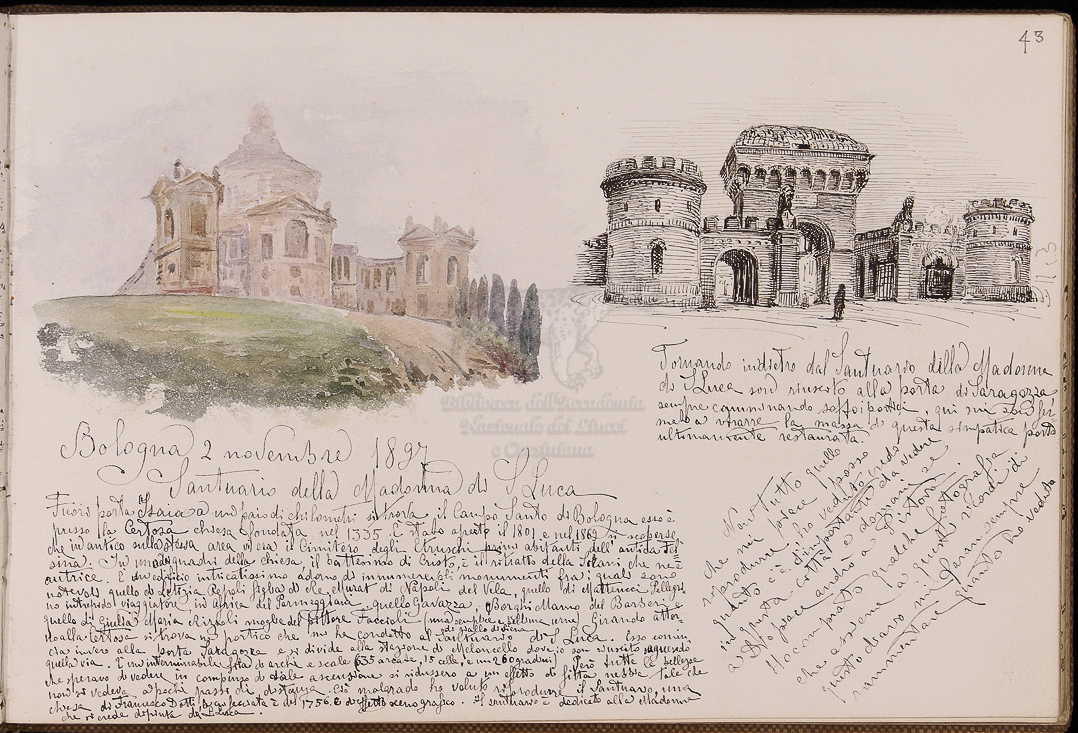 43
Bologna 2 novembre 1897
Santuario della Madonna di S Luca
Fuori porta Isaia a un paio di chilometri si trova il Campo Santo di Bologna esso è
presso la Certosa chiesa fondata nel 1335. È stato aperto il 1801 e nel 1869 si scoperse
che in antico sulla stessa area vi era il Cimitero degli Etruschi primi abitanti dell'antica Fel
sina. In quadri della chiesa, il battesimo di Cristo, è il ritratto della Sirani che ne è
autrice. È un edificio intricatissimo adorno di innumerevoli monumenti fra i quali sono
notevoli quello di Letizia Pepoli figlia di re Murat di Napoli del Vela, quello di Matteucci
intrepido viaggiatore in africa del Parmeggiani quello Gavazza, Borghi Mamo del Barberi e
quello di Giulia Maria moglie del pittore Faccioli (una semplice e bellissima urna) Girando attor
no alla Certosa si trova un portico che mi ha condotto al Santuario di S Luca. Esso comin
cia invero alla porta Saragozza e si divide alla stazione di Meloncello dove io son riuscito seguendo
quella via. È un interminabile fila di archi e scale (635 arcate, 15 celle, e un 260 gradini) Però tutte le bellezze
che speravo di vedere in compenso di tale ascensione si ridussero a un effetto di fitta nebbia tale che
non si vedeva a pochi passi di distanza. Ciò malgrado ho voluto riprodurre il Santuario, una
chiesa di Francesco Dotti la cui facciata è del 1756. È d'effetto scenografico. Il santuario è dedicato alla Madonna
che si crede dipinta da S Luca.
Tornando indietro dal Santuario della Madonna
di S Luca son riuscito alla porta di Saragozza
sempre camminando sotto i portici, qui mi son fer
mato a ritrarre la massa di questa simpatica porta
ultimamente restaurata.
Non tutto quello
che mi piace posso
riprodurre, ho veduto credo
quanto c'è d'importante da vedere
in questa città e domani se
a Dio piace andrò a Pistoia.
Ho comprato qualche fotografia
che assieme a questi ricordi di
questo diario mi faran sempre
rammentare quanto ho veduto
Biblioteca dell'Accademia
Nazionale dei Lincei
e Corsiniana